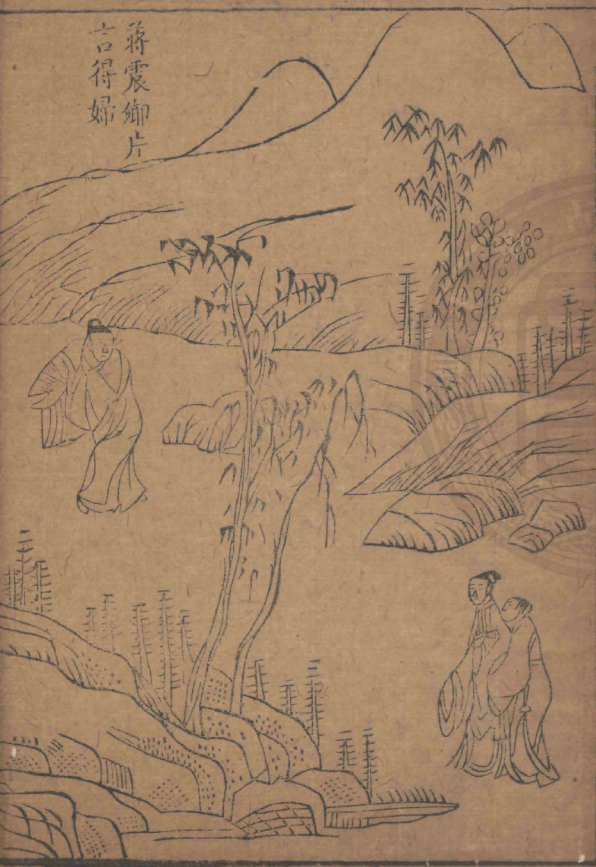 蔣震卿片
言得婦